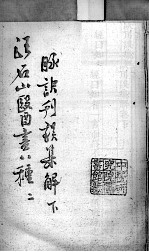 脉訣刊誤集解 下
汪石山醫書八種 二